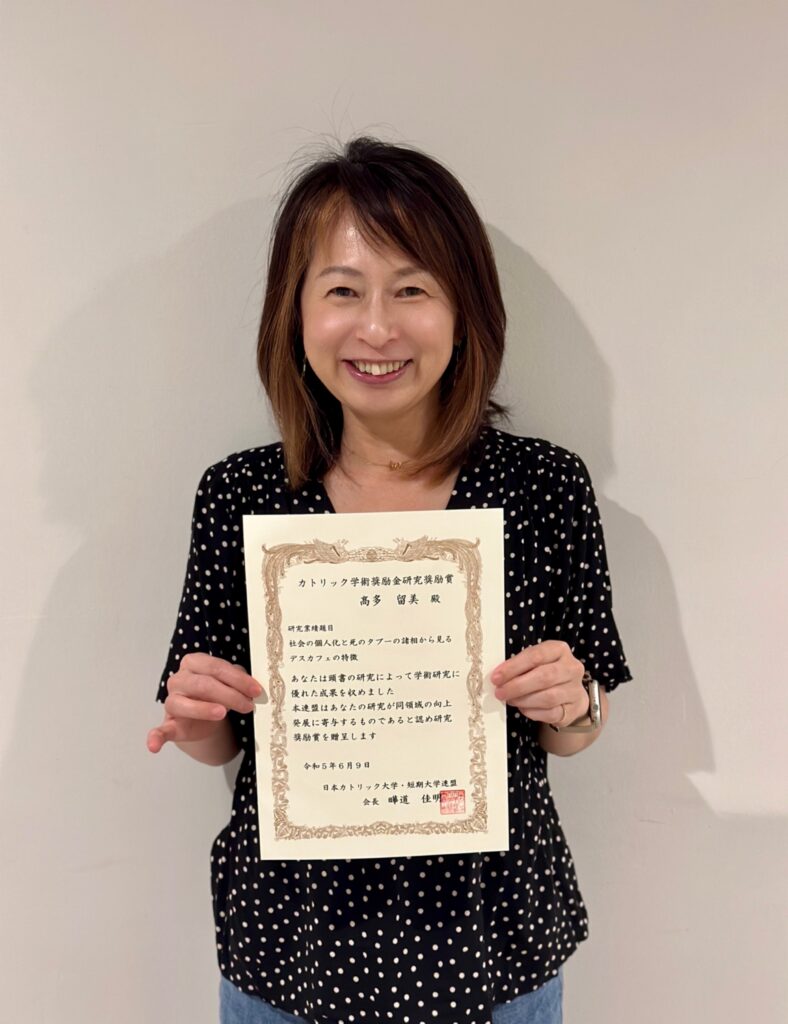 カトリック学術奨励金研究奨励賞
髙多 留美 殿
研究業績題目
社会の個人化と死のタブーの諸相から見る
デスカフェの特徴
あなたは頭書の研究によって学術研究に
優れた成果を収めました
本連盟はあなたの研究が同領域の向上
発展に寄与するものであると認め研究
奨励賞を贈呈します
令和5年6月9日
日本カトリック大学・短期大学連盟
会長 曄道 佳明